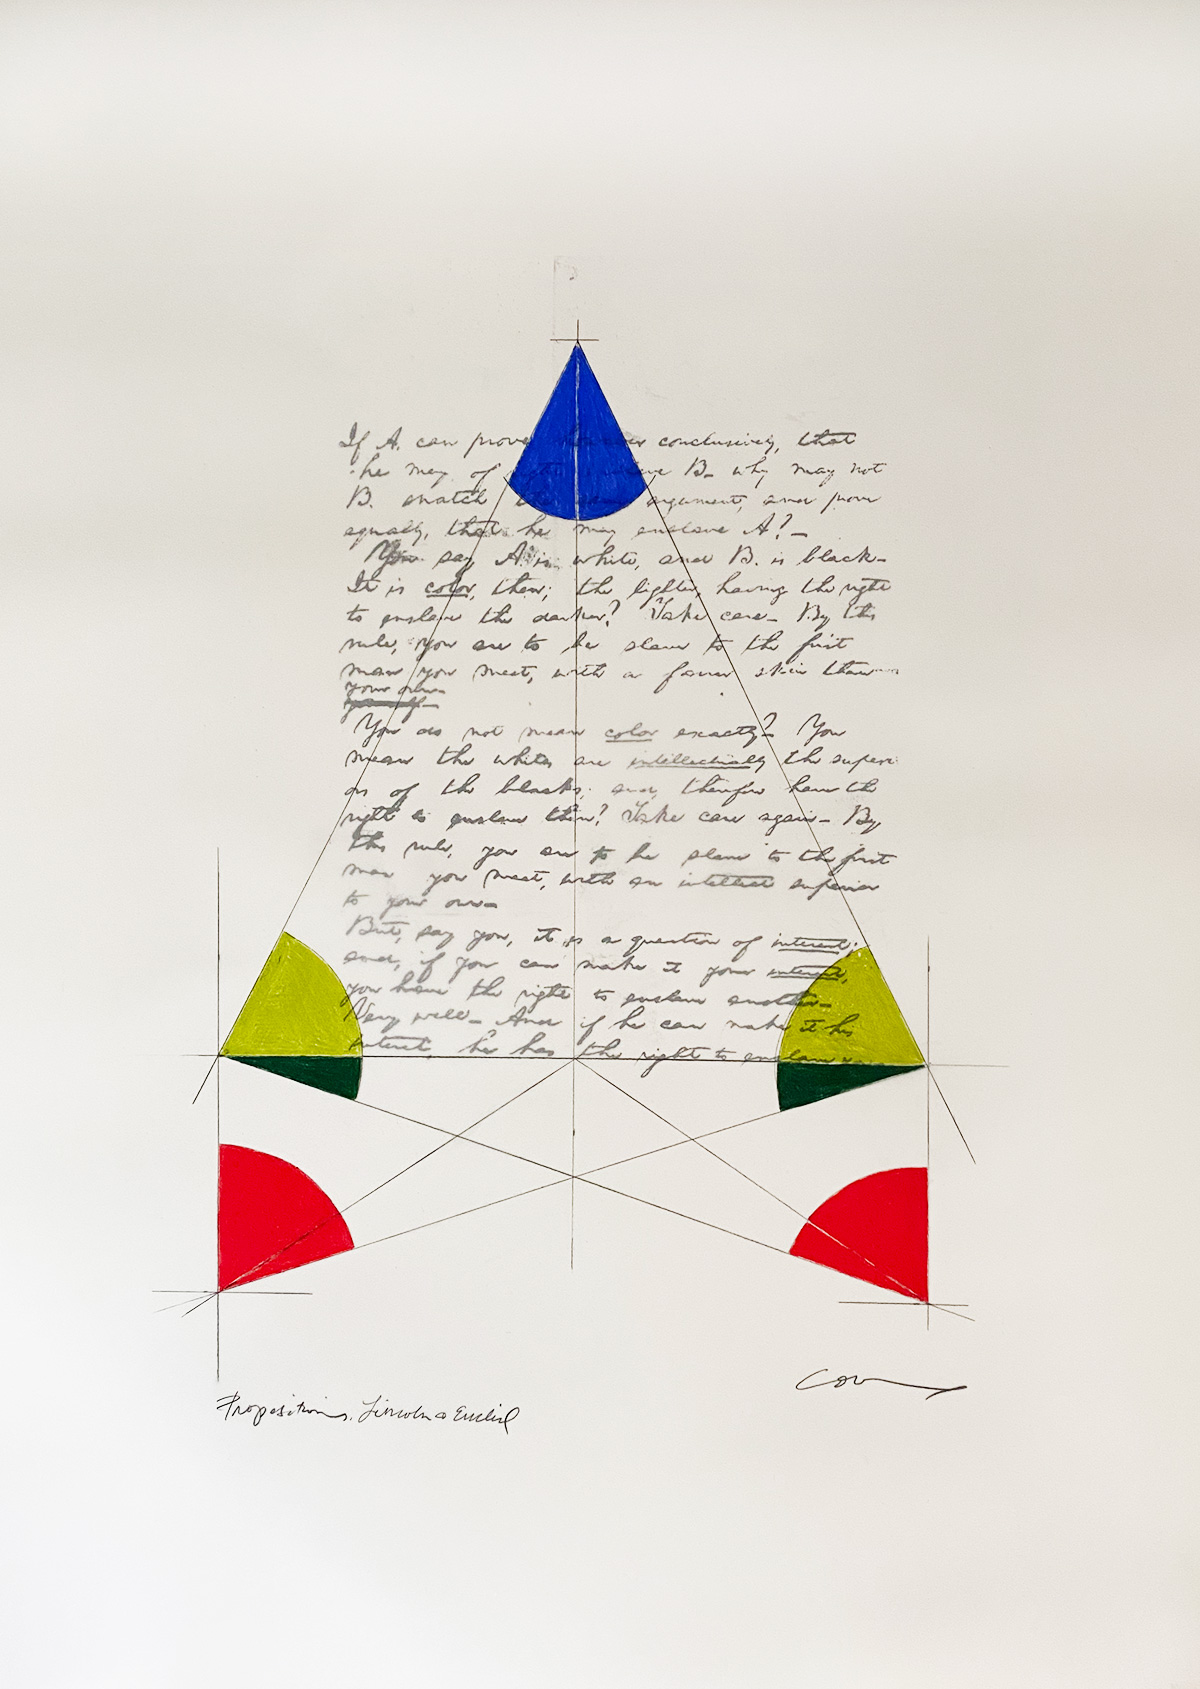 If A. can prove, however conclusively, that
he may, of right, enslave B— why may not
B. snatch the same argument, and prove
equally, that he may enslave A?—
You say A. is white, and B. is black—
It is color, then; the lighter, having the right
to enslave the darker? Take care— By this
rule, you are to be slave to the first
man you meet, with a fairer skin than
your own—
yourself—
You do not mean color exactly? You
mean the whites are intellectually the superi
ors of the blacks; and, therefore have the
right to enslave them? Take care again— By
this rule, you are to be slave to the first
man you meet, with an intellect superior
to your own—
But, say you, it is a question of interest;
and, if you can make it your interest,
you have the right to enslave another—
Very well— And if he can make it his
interest, he has the right to enslave you
Propositions, Lincoln & Euclid